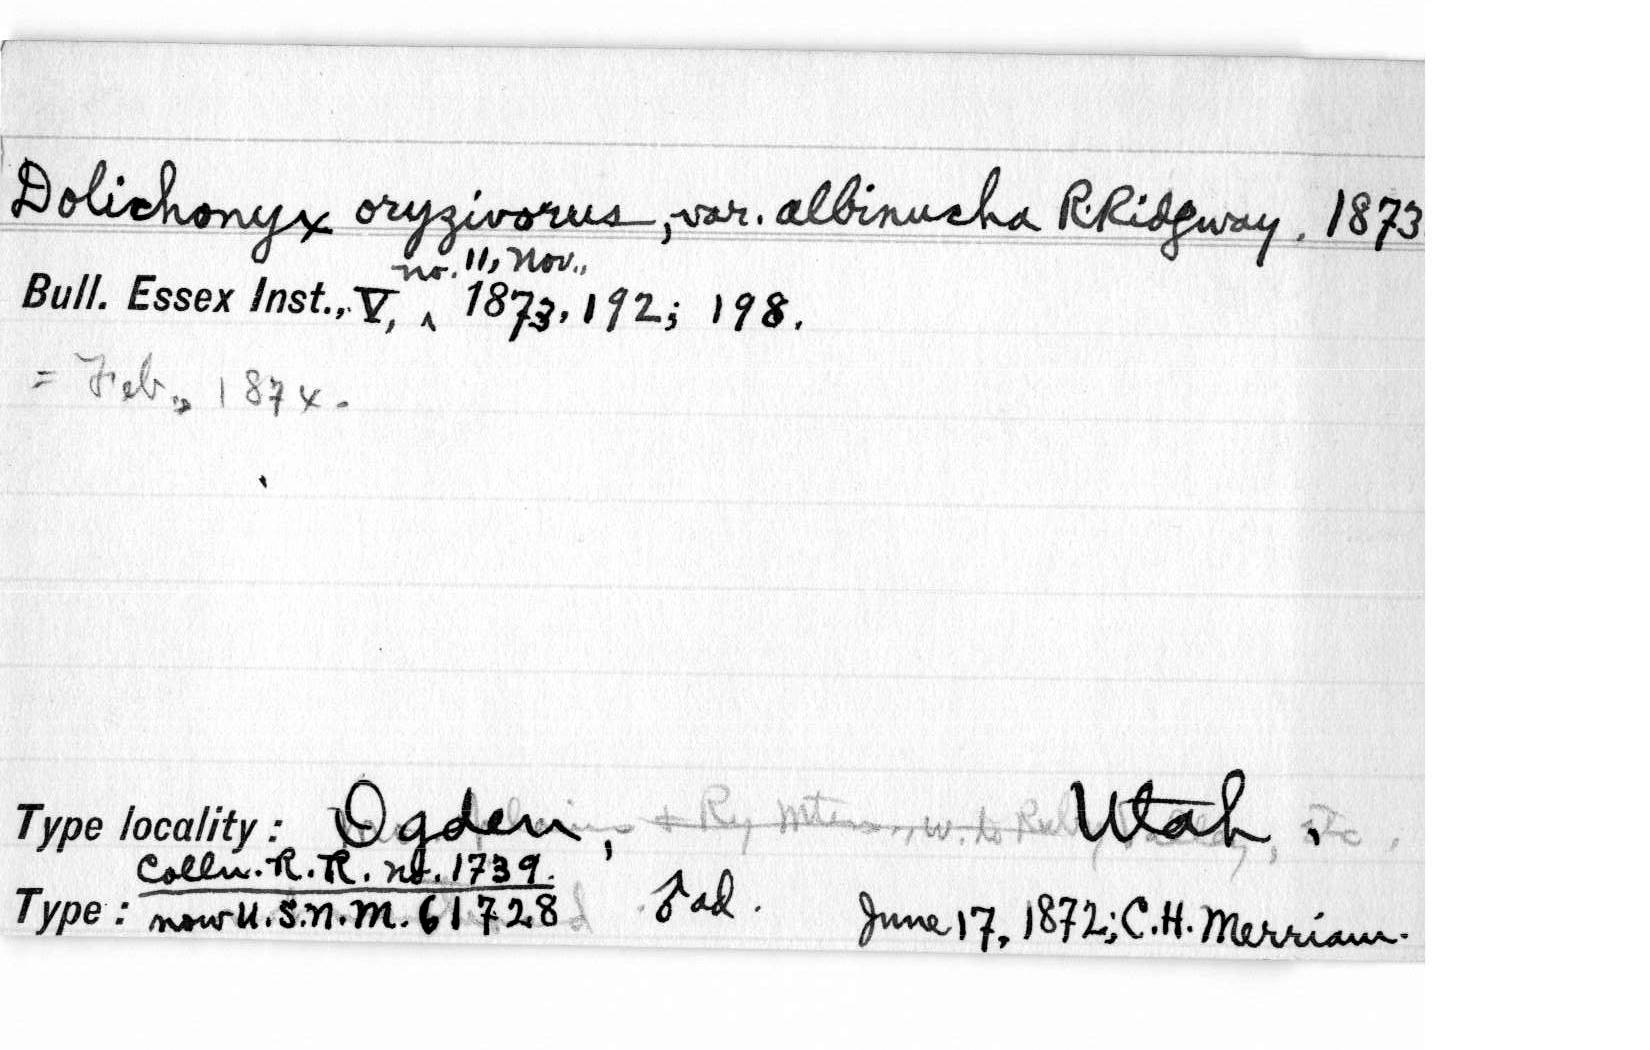 Dolichonyx oryzivorus, var. albinucha R. Ridgway. 1873
no. 11, Nov.,
Bull. Essex Inst., V, ^ 1873, 192; 198.
= Feb., 1874.
Type locality: Ogden, Utah.
Colln. R. R. no. 1739.
Type: now U.S.N.M. 61728 ♂ ad. June 17, 1872; C.H. Merriam.